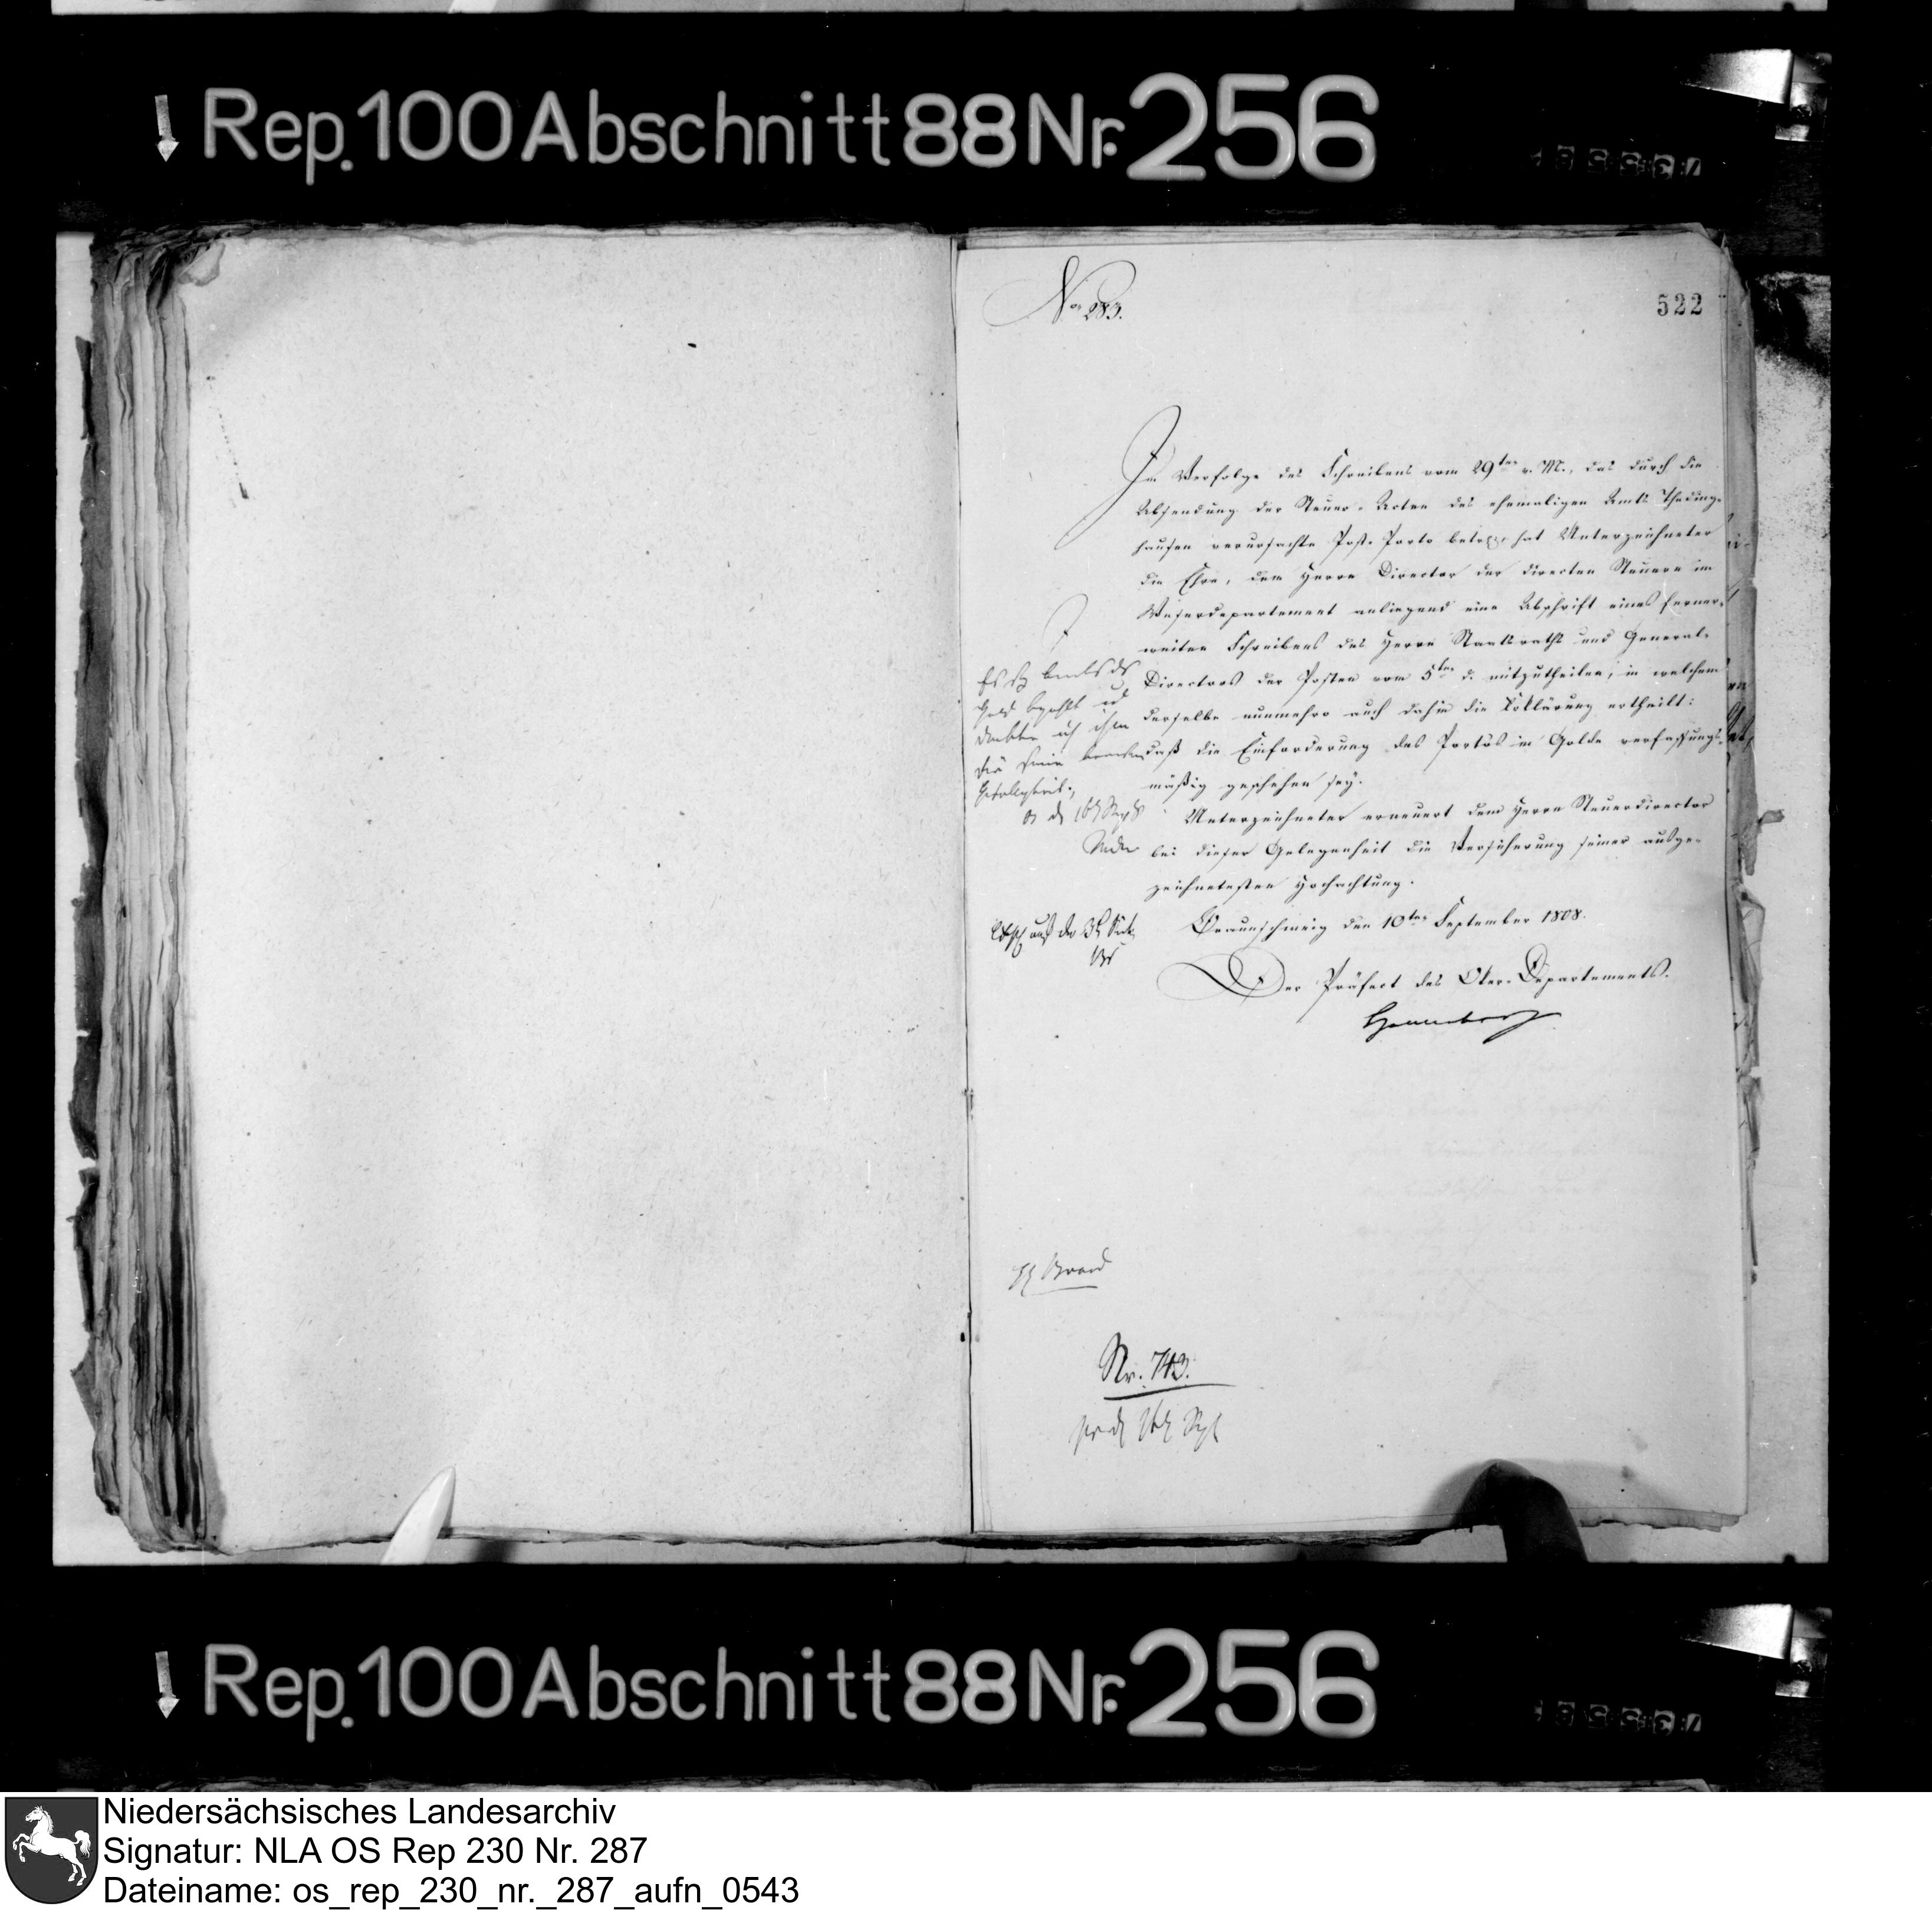 Rep. 100 Abschnitt 88 Nr. 256
No 283.
522
Im Verfolge des Schreibens vom 29ten v. M., das durch die
Absendung der Steuer-Acten des ehemaligen Amts Theding-
hausen verursachte Post-Porto betr. hat Unterzeichneter
die Ehre, dem Herrn Director der directen Steuern im
Weserdepartement anliegend eine Abschrift eines ferner-
weiten Schreibens des Herrn Staatsraths und General-
Directors der Posten vom 5ten d. mitzutheilen, in welchem
derselbe nunmehro auch dahin die Erklärung ertheilt:
daß die Einforderung des Porto's in Golde verfassungs-
mäßig geschehen sey.
Unterzeichneter erneuert dem Herrn Steuerdirector
bei dieser Gelegenheit die Versicherung seiner ausge-
zeichnetesten Hochachtung.
Braunschweig den 10ten September 1808.
Der Präfect des Oker-Departements.
Henneberg
Geld bezahlt
danke ich ihm
für seine
Gefälligkeit.
Nr. 743.
Rep. 100 Abschnitt 88 Nr. 256
Niedersächsisches Landesarchiv
Signatur: NLA OS Rep 230 Nr. 287
Dateiname: os_rep_230_nr._287_aufn_0543